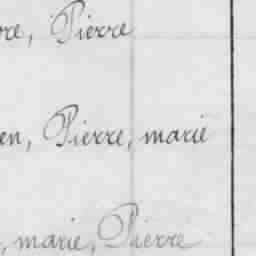 re, Pierre
en, Pierre, marie
, marie, Pierre